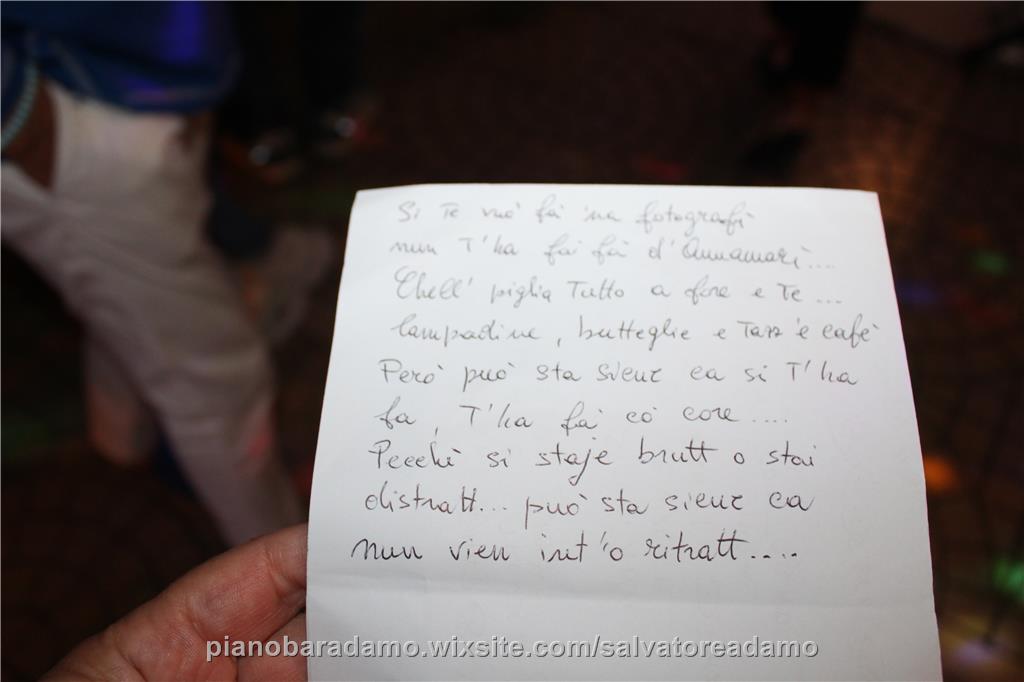 Si Te vuo' fa' 'na fotografì
nun T'ha fai fà d'Annamarì....
Chell' piglia Tutto a fore e Te...
lampadine, butteglie e Tazz 'e cafè
Però può sta sicur ca si T'ha
fa, T'ha fa' cò core....
Pecchè si staje brutt o stai
distratt... può sta sicur ca
nun vien int'o ritratt....
pianobaradamo.wixsite.com/salvatoreadamo